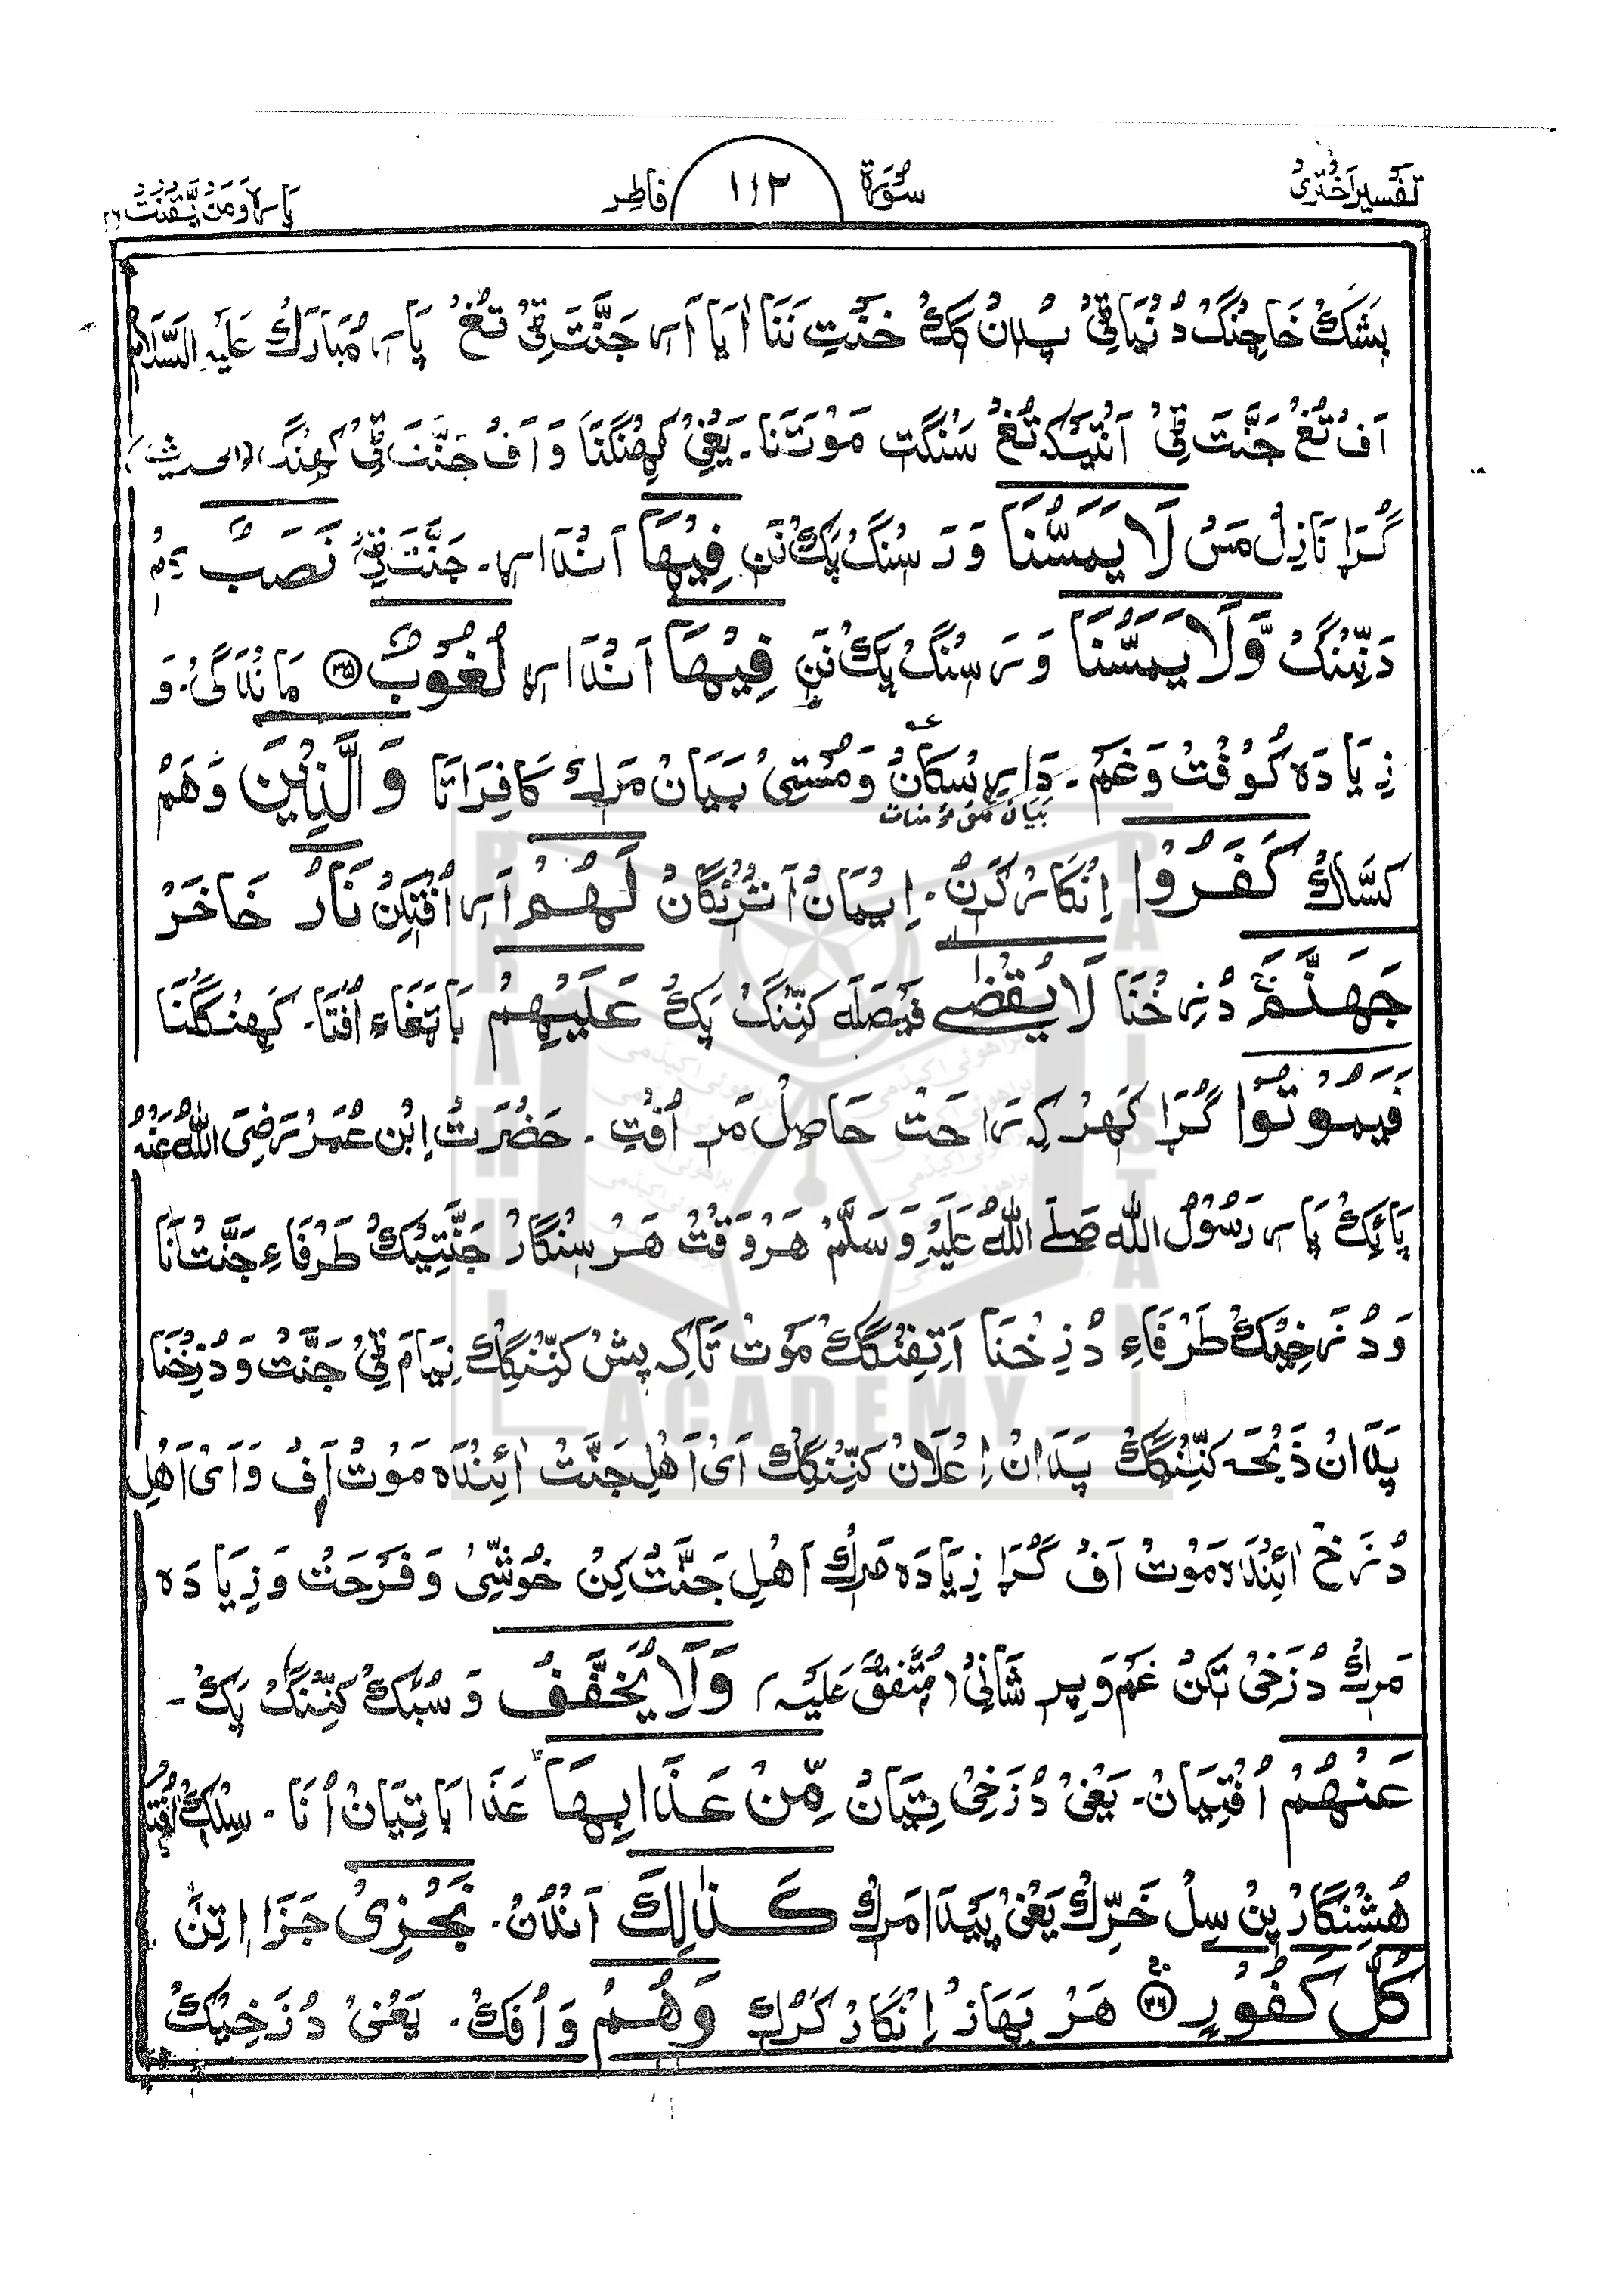 تفسیر اختری سُورَة ۱۱۲ فاطِر پاره وَمَن یَّقنُت ۲۲
بشَکُ خَاچِنگ دُنیَاٹی پدان کک خَنتِ نَنَا اٰیا اَرے جَنَّت ٹی تُغ پارے مُبَارَکُ عَلَیہِ السَّلَام
اَفُ تُغ جَنَّت ٹی اَنتَیکہ تُغ سَنگت مَوتَنَا۔ یَعنِی کَہِنگنَا وَ اَفُ جَنَّت ٹی کَہِنگ (الحدیث)
گُڑا نَازِل مَسُ لَا یَمَسُّنَا وَ رَسنگ پَک نَن فِیْهَا اَنْدَارے۔ جَنَّت ٹی نَصَبٌ
دَنِّنگ وَّلَا یَمَسُّنَا وَ رَسنگ پَک نَن فِیْهَا اَنْدَارے لُغُوْبٌ ۳۵ مَانْدَگی۔ وَ
زِیَادَہ کُوفت وَ غَم۔ دَارِسکان وَ مُستی بَیَان مَرک کَافِرَاتَا وَالَّذِیْنَ وَ هَم
کَسَّاک کَفَرُوْا اِنکَار کَرن۔ اِیمَان اَترنگان لَهُمْ اَرے اُفتکِن نَارُ خَاخَر
جَهَنَّمَ دُزخنَا لَا یُقْضٰی فَیصَلہ کَنِّنگ پَک عَلَیْهِمْ بَاتغاء اُفتَا۔ کَہِنگنَا
فَیَمُوْتُوْا گُڑا کَہر کہ رَاحَت حَاصِل مَر اُفتِ۔ حَضرَت اِبن عُمَر رَضِیَ اللّٰہُ عَنہُ
پَائک پَارے رَسُولُ اللّٰہ صَلَّے اللّٰہُ عَلَیہِ وَسَلَّم هَروَقت هَر سنگار جَنَّتِیک طَرفَاءِ جَنَّت نَا
وَ دُزخِیک طَرفَاءِ دُزِخنَا اَتِفنگک مَوت تَاکہ پیش کَنِّنگک نِیَام ٹی جَنَّت وَ دُزخنَا
پَدَان ذَبحَہ کَنِّنگک پَدَان اِعلَان کَنِّنگک اَی اَهلِ جَنَّت اٰئندَہ مَوت اَفُ وَ اَی اَهلِ
دُزخ اٰئندَہ مَوت اَفُ گُڑا زِیَادَہ مَرک اَهلِ جَنَّت کِن خُوشِّی وَ فَرحَت وَ زِیَادَہ
مَرک دُزَخی تکن غَم وَ پرِشَانی (مُتَّفَقٌ عَلَیہ) وَلَا یُخَفَّفُ وَ سُبک کَنِّنگ پَک۔
عَنْهُمْ اُفتیَان۔ یَعنِی دُزَخِی تِیَان مِّنْ عَذَابِهَا عَذَابَاتِیَان اُنَا۔ سِلک اُفتَا
هُشنگار پن سِل خَرِّک یَعنِی پَیدَا مَرک کَذٰلِكَ اَنْدُن۔ نَجْزِیْ جَزَا اِتِنَ
کُلَّ کَفُوْرٍ ۳۶ هَر بَهَاز اِنکَار کَرک وَهُمْ وَ اُفک۔ یَعنِی دُزَخِیک